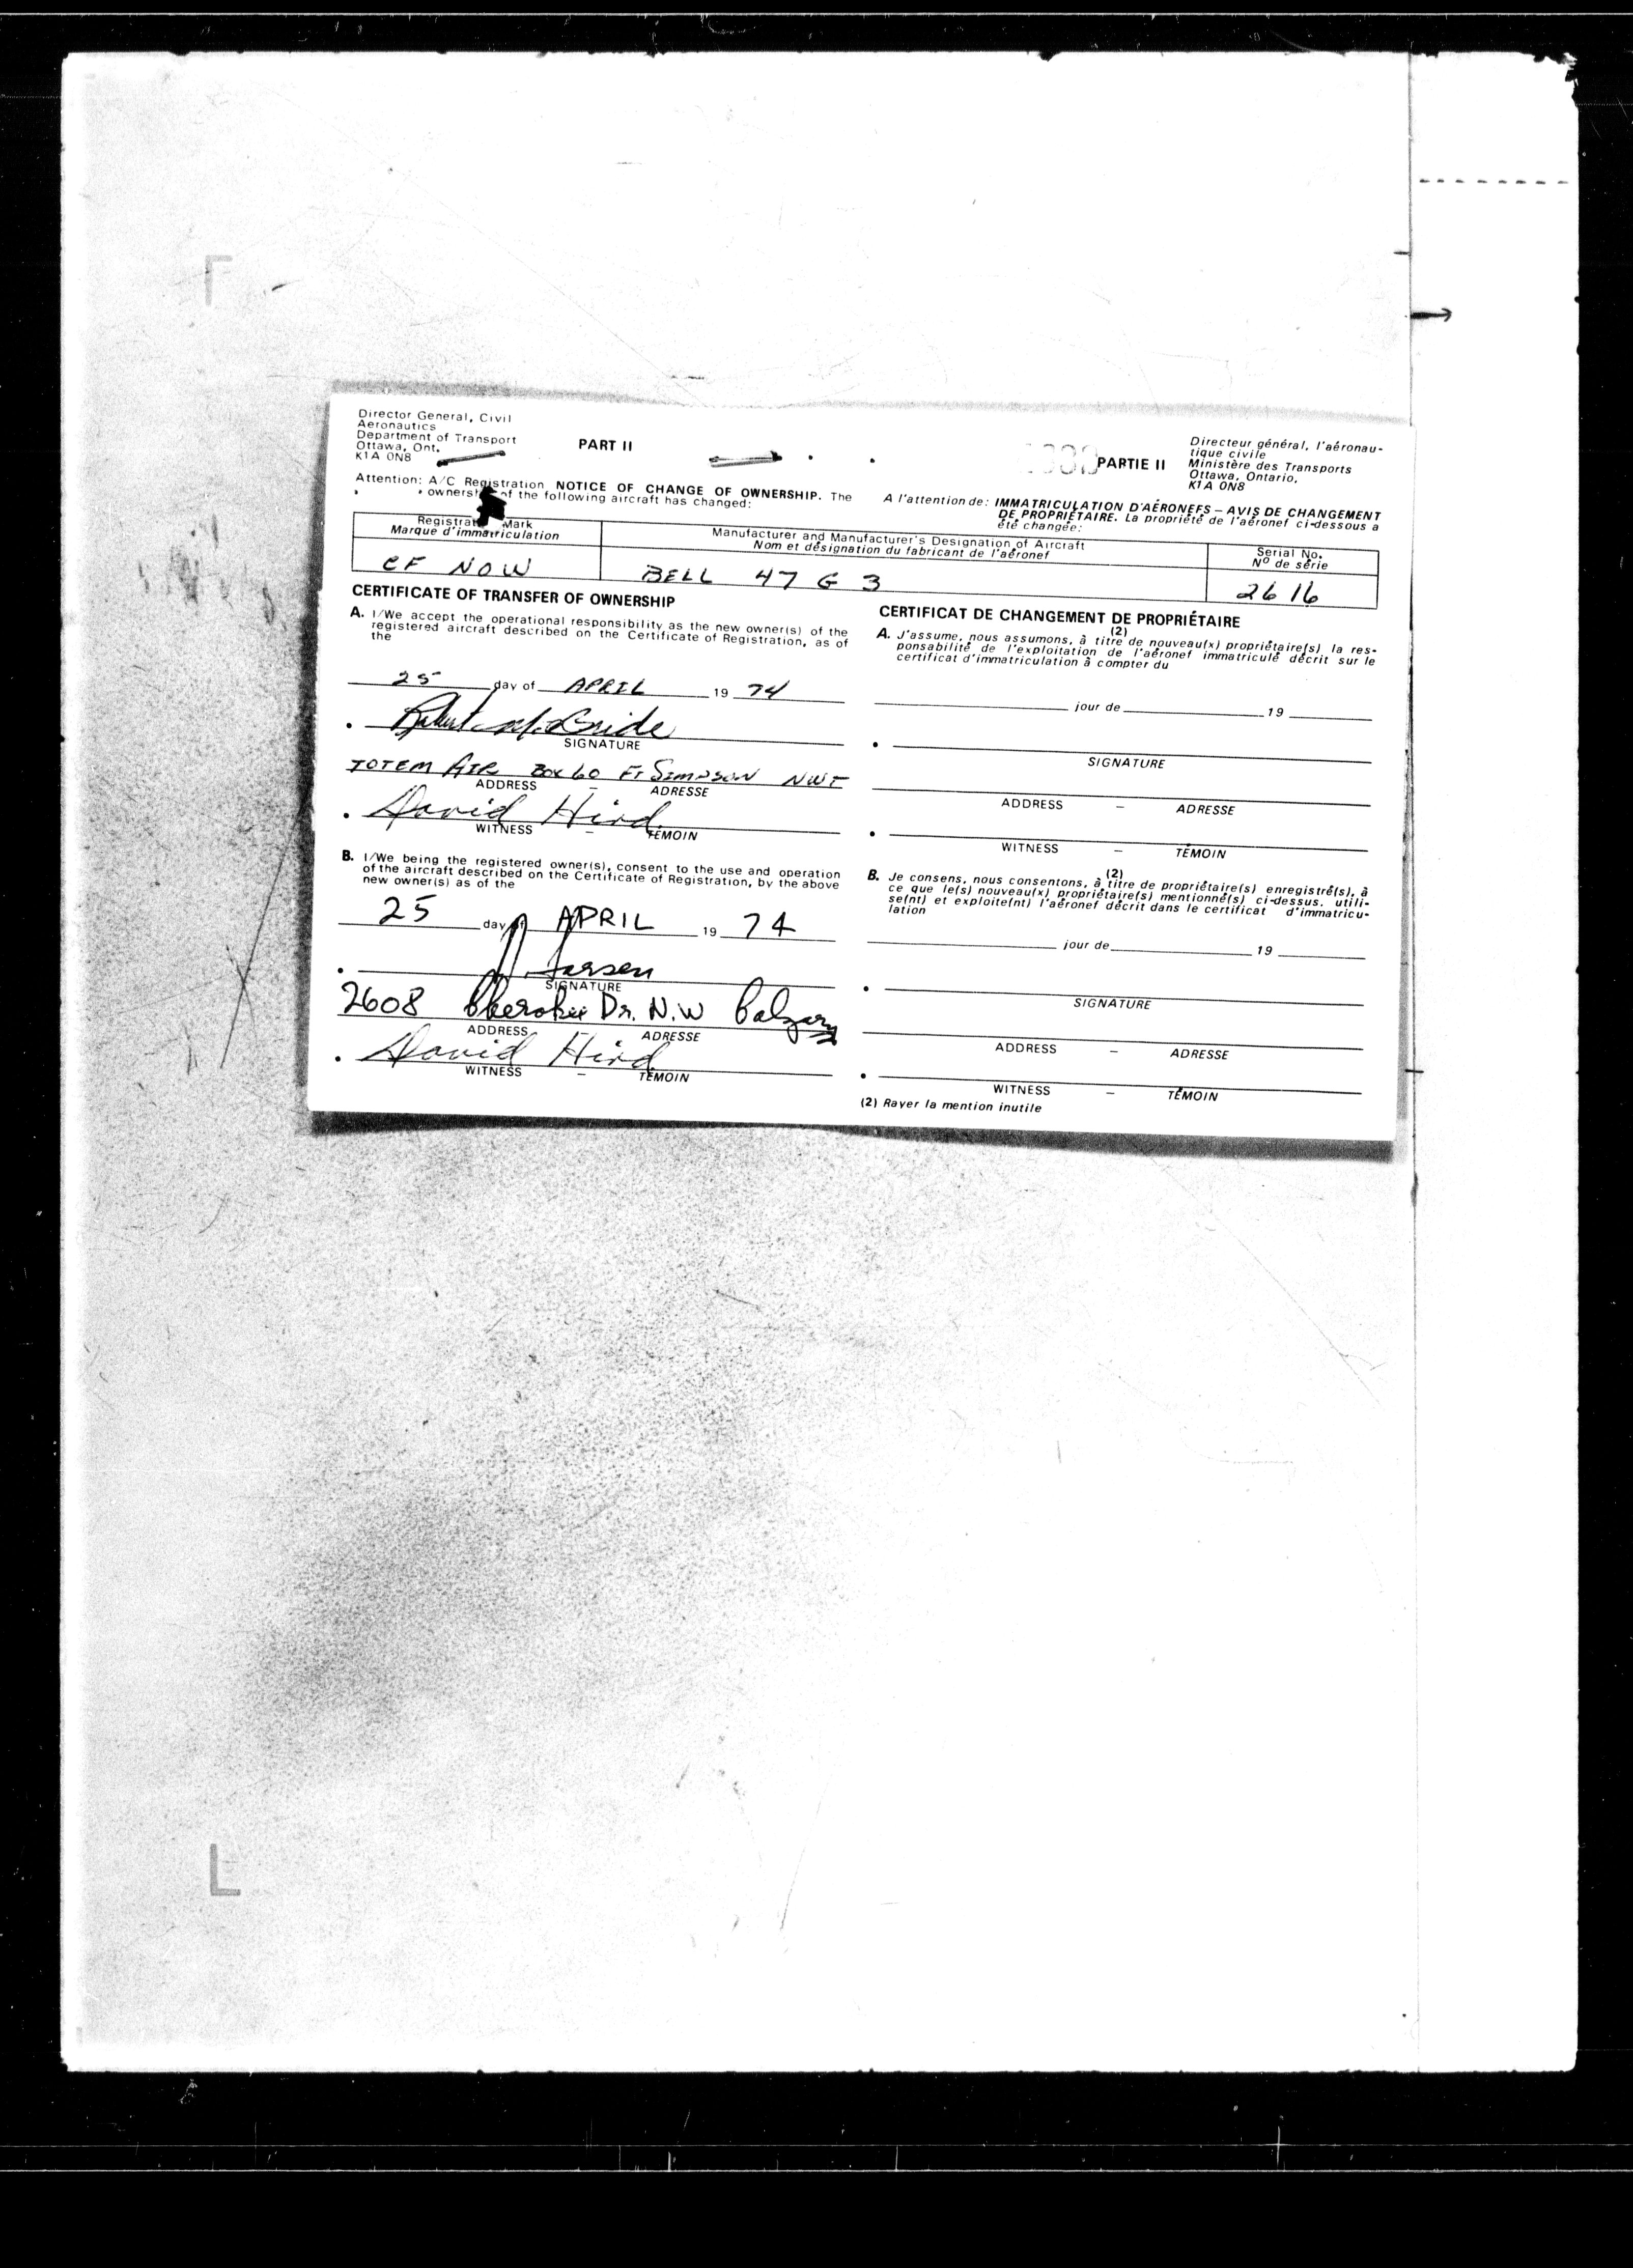 Director General, Civil
Aeronautics
Department of Transport
Ottawa, Ont.
K1A 0N8
PART II
PARTIE II
Directeur général, l'aéronau-
tique civile
Ministère des Transports
Ottawa, Ontario.
K1A 0N8
Attention: A/C Registration NOTICE OF CHANGE OF OWNERSHIP. The
of the following aircraft has changed:
A l'attention de: IMMATRICULATION D'AÉRONEFS – AVIS DE CHANGEMENT
DE PROPRIÉTAIRE. La propriété de l'aéronef ci-dessous a
été changée:
Mark
Marque d'immatriculation
Manufacturer and Manufacturer's Designation of Aircraft
Nom et désignation du fabricant de l'aéronef
Serial No.
Nº de série
CF NOW
BELL 47 G 3
2616
CERTIFICATE OF TRANSFER OF OWNERSHIP
A. I/We accept the operational responsibility as the new owner(s) of the
registered aircraft described on the Certificate of Registration, as of
the
25 day of APRIL 19 74
SIGNATURE
TOTEM AIR BOX 60 FT SIMPSON NWT
ADDRESS – ADRESSE
David Hird
WITNESS – TÉMOIN
B. I/We being the registered owner(s), consent to the use and operation
of the aircraft described on the Certificate of Registration, by the above
new owner(s) as of the
25 day of APRIL 19 74
SIGNATURE
2608 Cherokee Dr. N.W Calgary
ADDRESS ADRESSE
David Hird
WITNESS – TÉMOIN
CERTIFICAT DE CHANGEMENT DE PROPRIÉTAIRE
(2)
A. J'assume, nous assumons, à titre de nouveau(x) propriétaire(s) la res-
ponsabilité de l'exploitation de l'aéronef immatriculé décrit sur le
certificat d'immatriculation à compter du
jour de 19
SIGNATURE
ADDRESS – ADRESSE
WITNESS – TÉMOIN
(2)
B. Je consens, nous consentons, à titre de propriétaire(s) enregistré(s), à
ce que le(s) nouveau(x) propriétaire(s) mentionné(s) ci-dessus. utili-
se(nt) et exploite(nt) l'aéronef décrit dans le certificat d'immatricu-
lation
jour de 19
SIGNATURE
ADDRESS – ADRESSE
WITNESS – TÉMOIN
(2) Rayer la mention inutile